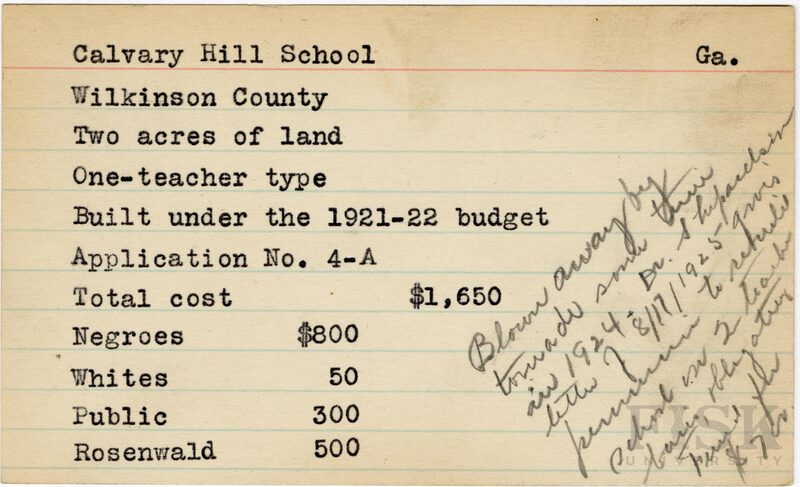 Calvary Hill School Ga.
Wilkinson County
Two acres of land
One-teacher type
Built under the 1921-22 budget
Application No. 4-A
Total cost $1,650
Negroes $800
Whites 50
Public 300
Rosenwald 500
Blown away by
tornado some time
in 1924. Dr. Shepardson
letter 8/17/1925 gives
permission to rebuild
school on 2 teacher
basis obligating
Fund for
$700.
FISK
UNIVERSITY